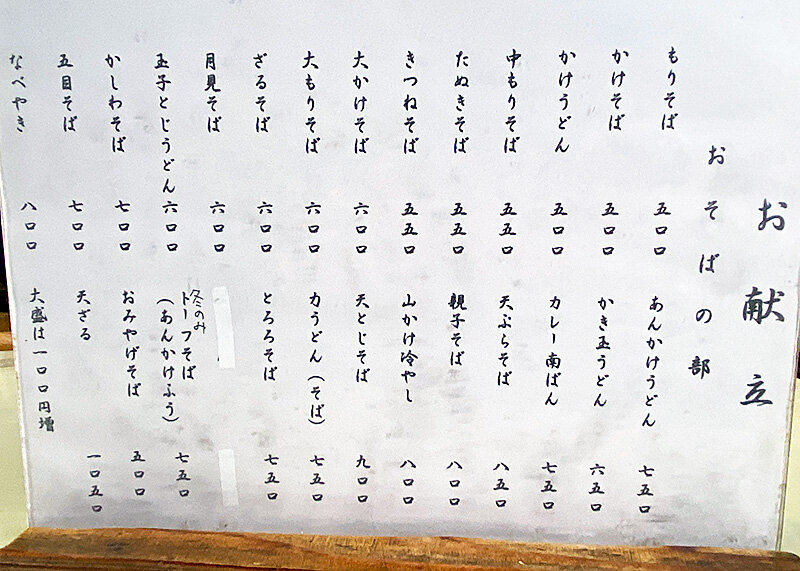 お献立
おそばの部
もりそば 五〇〇
かけそば 五〇〇
かけうどん 五〇〇
中もりそば 五五〇
たぬきそば 五五〇
きつねそば 五五〇
大かけそば 六〇〇
大もりそば 六〇〇
ざるそば 六〇〇
月見そば 六〇〇
玉子とじうどん 六〇〇
かしわそば 七〇〇
五目そば 七〇〇
なべやき 八〇〇
あんかけうどん 七五〇
かき玉うどん 六五〇
カレー南ばん 七五〇
天ぷらそば 八五〇
親子そば 八〇〇
山かけ冷やし 八〇〇
天とじそば 九〇〇
力うどん(そば) 七五〇
とろろそば 七五〇
冬のみ
トーフそば 七五〇
(あんかけふう)
おみやげそば 五〇〇
天ざる 一〇五〇
大盛は一〇〇円増